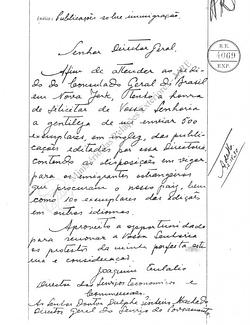 Publicações sobre immigração.
Senhor Director Geral.
Afim de attender ao pedi-
do do Consulado Geral do Brasil
em Nova York, tenho a honra
de solicitar de Vossa Senhoria
a gentileza de me enviar 500
exemplares, em inglez, das publi-
cações editadas por essa Directoria
contendo as disposições em vigor,
para os immigrantes extrangeiros
que procuram o nosso paiz, bem
como 100 exemplares das edições
em outros idiomas.
Aproveito a opportunidade
para renovar a Vossa Senhoria
os protestos da minha perfeita esti-
ma e consideração.
Joaquim Eulalio
Director dos Serviços Economicos e
Commerciaes.
Ao Senhor Doutor Dulphe Pinheiro Machado
Director Geral do Serviço do Povoamento.
R.E.
4069
EXP.